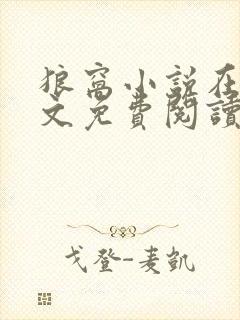 狼窝小说在
文免费阅读
戈登-麦凯